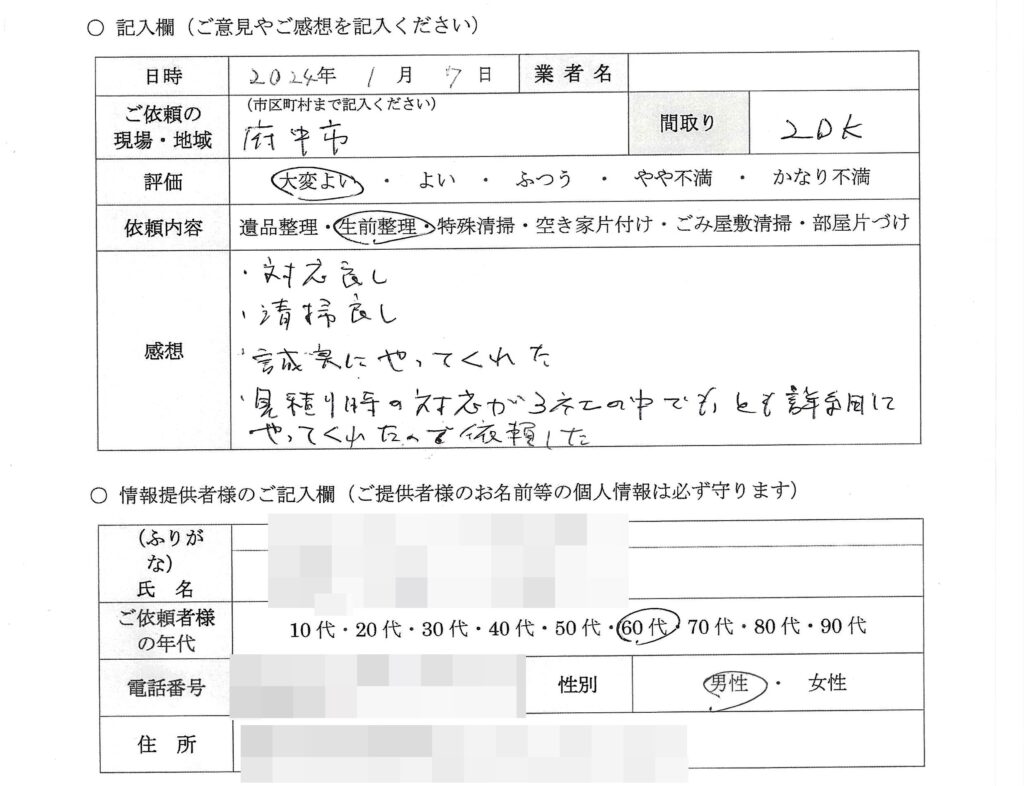 ○ 記入欄（ご意見やご感想を記入ください）
日時 2024年 1月 7日 業者名
ご依頼の現場・地域 （市区町村まで記入ください） 府中市 間取り 2DK
評価 大変よい ・ よい ・ ふつう ・ やや不満 ・ かなり不満
依頼内容 遺品整理・生前整理・特殊清掃・空き家片付け・ごみ屋敷清掃・部屋片づけ
感想
・対応良し
・清掃良し
・誠実にやってくれた
・見積り時の対応が3社の中でもっとも詳細に
やってくれたので依頼した
○ 情報提供者様のご記入欄（ご提供者様のお名前等の個人情報は必ず守ります）
（ふりがな）
氏 名
ご依頼者様の年代 10代・20代・30代・40代・50代・60代・70代・80代・90代
電話番号 性別 男性 ・ 女性
住 所